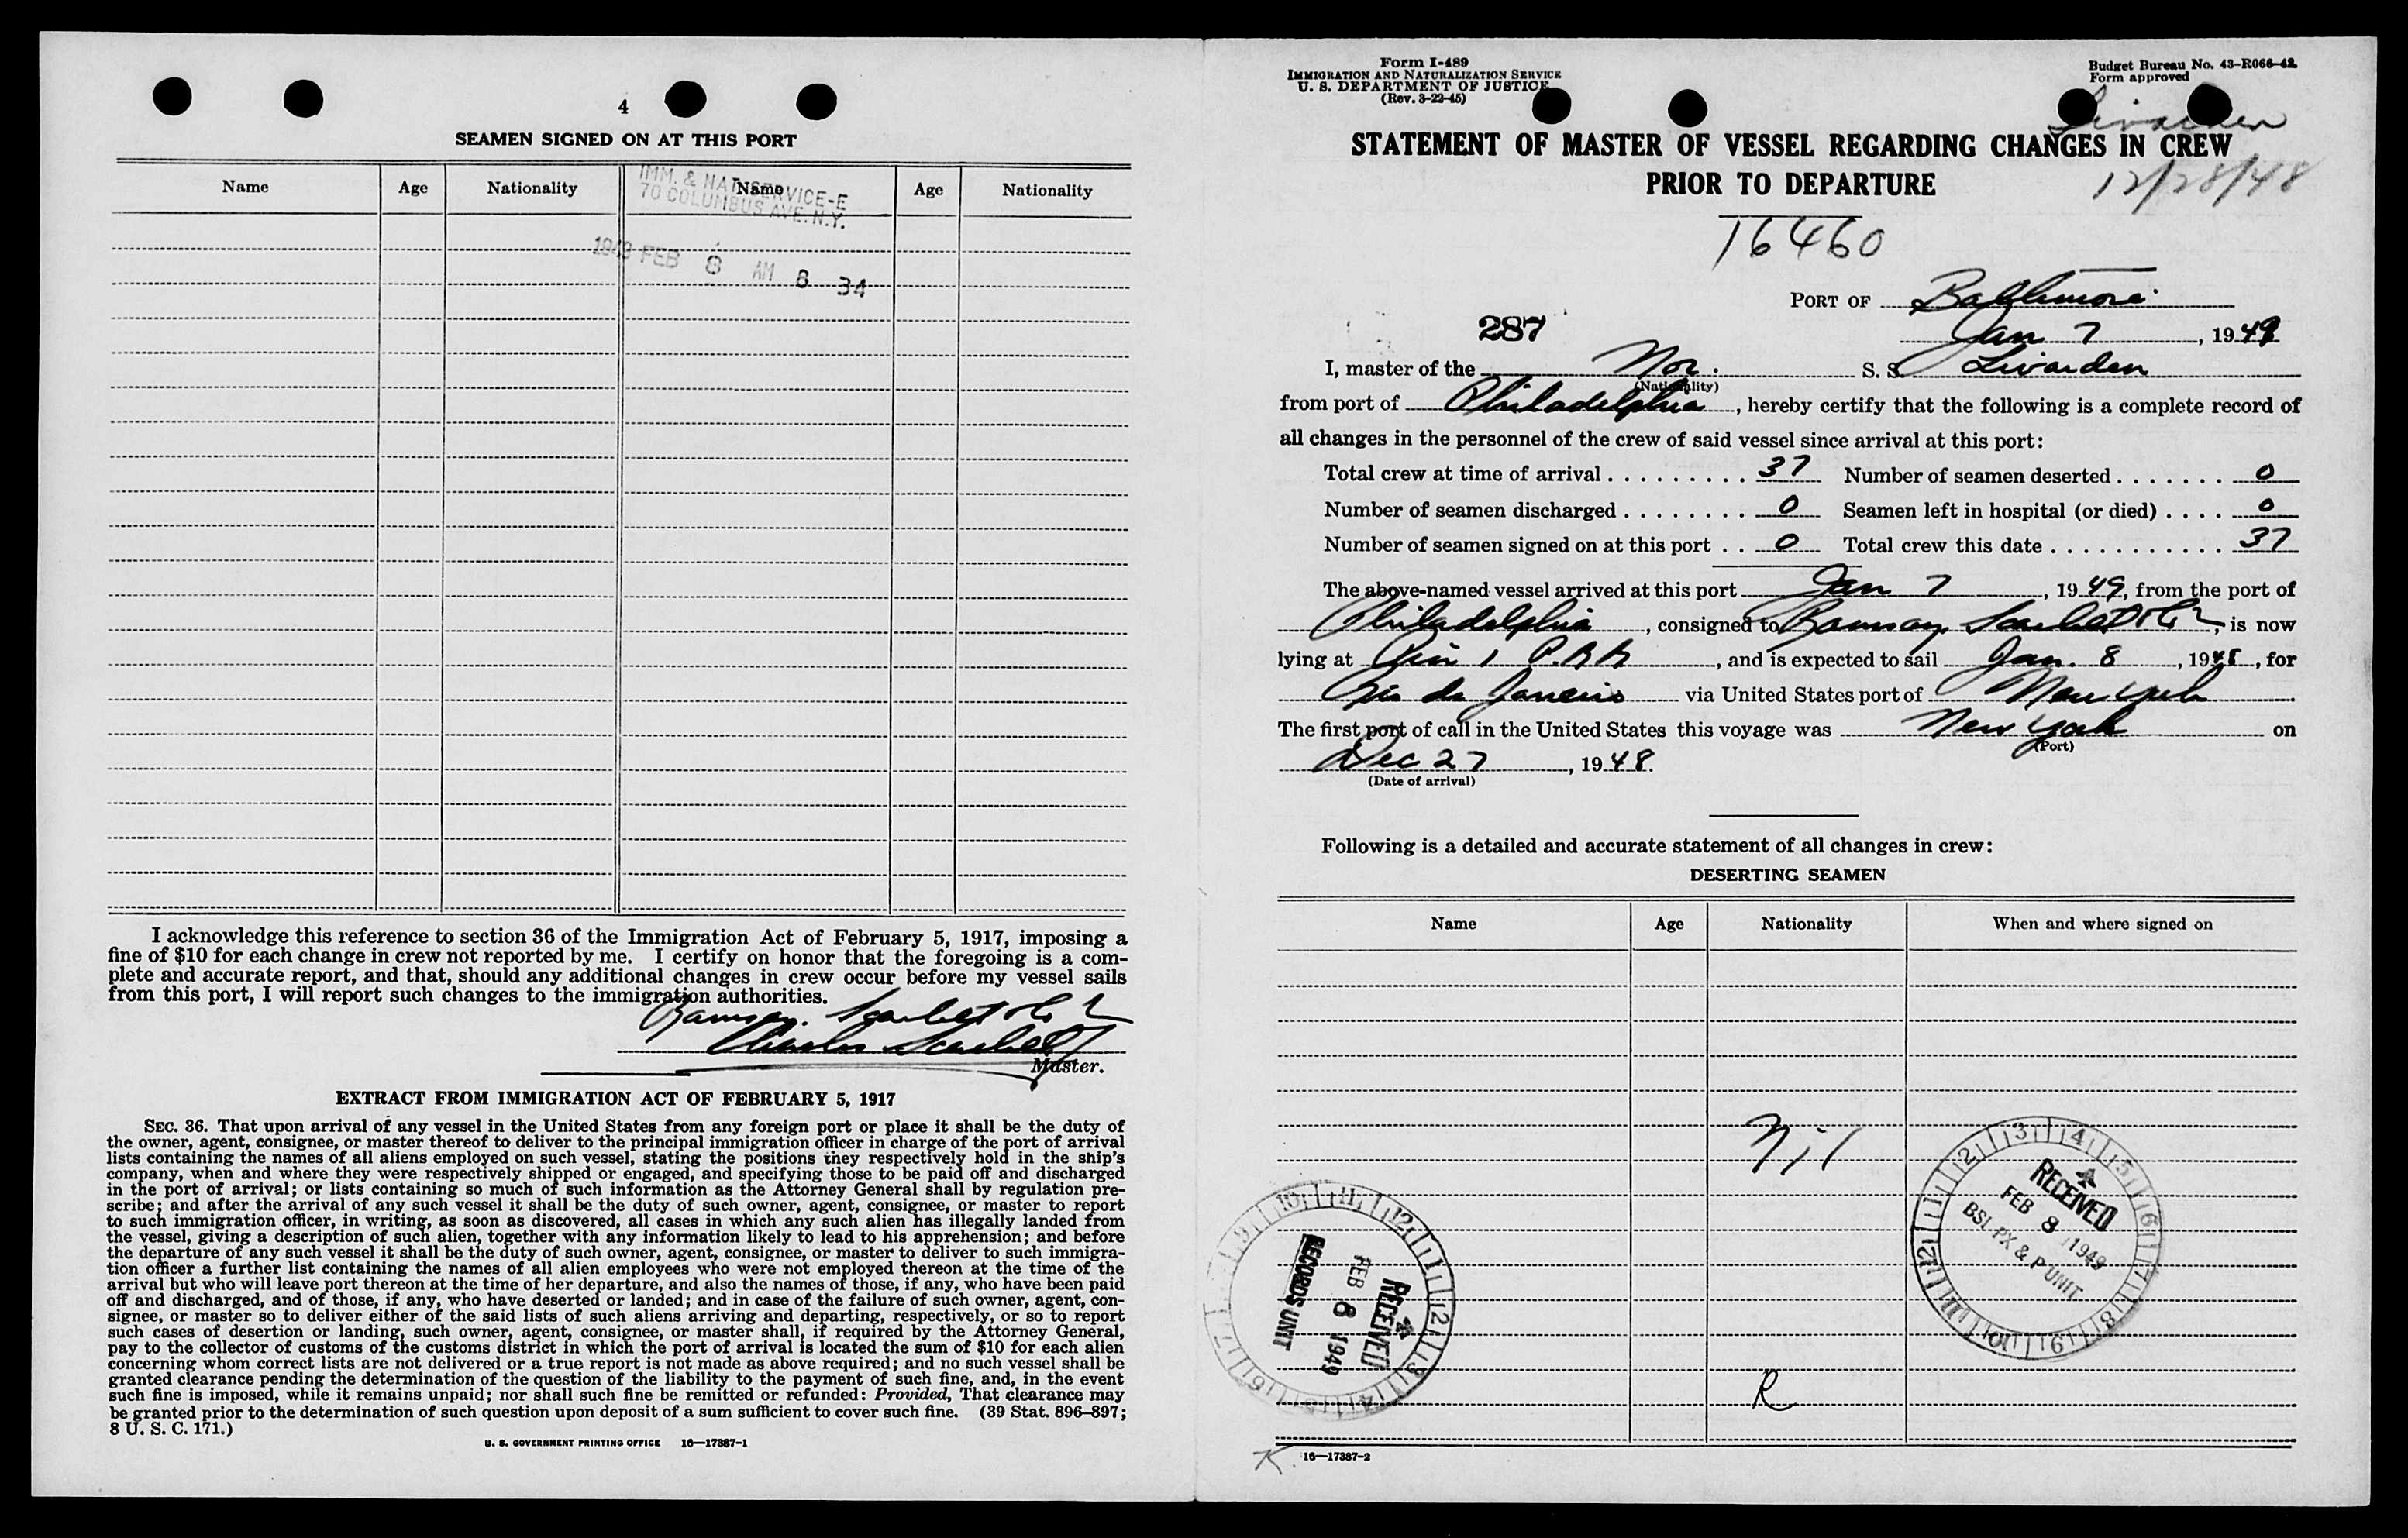 4
SEAMEN SIGNED ON AT THIS PORT
Name Age Nationality Name Age Nationality
IMM. & NAT. SERVICE-E
70 COLUMBUS AVE. N.Y.
1949 FEB 8 AM 8 34
I acknowledge this reference to section 36 of the Immigration Act of February 5, 1917, imposing a
fine of $10 for each change in crew not reported by me. I certify on honor that the foregoing is a com-
plete and accurate report, and that, should any additional changes in crew occur before my vessel sails
from this port, I will report such changes to the immigration authorities.
Ramsay, Scarlett & Co
Charles Scarlett
Master.
EXTRACT FROM IMMIGRATION ACT OF FEBRUARY 5, 1917
SEC. 36. That upon arrival of any vessel in the United States from any foreign port or place it shall be the duty of
the owner, agent, consignee, or master thereof to deliver to the principal immigration officer in charge of the port of arrival
lists containing the names of all aliens employed on such vessel, stating the positions they respectively hold in the ship's
company, when and where they were respectively shipped or engaged, and specifying those to be paid off and discharged
in the port of arrival; or lists containing so much of such information as the Attorney General shall by regulation pre-
scribe; and after the arrival of any such vessel it shall be the duty of such owner, agent, consignee, or master to report
to such immigration officer, in writing, as soon as discovered, all cases in which any such alien has illegally landed from
the vessel, giving a description of such alien, together with any information likely to lead to his apprehension; and before
the departure of any such vessel it shall be the duty of such owner, agent, consignee, or master to deliver to such immigra-
tion officer a further list containing the names of all alien employees who were not employed thereon at the time of the
arrival but who will leave port thereon at the time of her departure, and also the names of those, if any, who have been paid
off and discharged, and of those, if any, who have deserted or landed; and in case of the failure of such owner, agent, con-
signee, or master so to deliver either of the said lists of such aliens arriving and departing, respectively, or so to report
such cases of desertion or landing, such owner, agent, consignee, or master shall, if required by the Attorney General,
pay to the collector of customs of the customs district in which the port of arrival is located the sum of $10 for each alien
concerning whom correct lists are not delivered or a true report is not made as above required; and no such vessel shall be
granted clearance pending the determination of the question of the liability to the payment of such fine, and, in the event
such fine is imposed, while it remains unpaid; nor shall such fine be remitted or refunded: Provided, That clearance may
be granted prior to the determination of such question upon deposit of a sum sufficient to cover such fine. (39 Stat. 896–897;
8 U. S. C. 171.)
U. S. GOVERNMENT PRINTING OFFICE 16—17387-1
Form I-489
IMMIGRATION AND NATURALIZATION SERVICE
U. S. DEPARTMENT OF JUSTICE
(Rev. 3-22-45)
Budget Bureau No. 43-R066-42
Form approved
Livarden
STATEMENT OF MASTER OF VESSEL REGARDING CHANGES IN CREW
PRIOR TO DEPARTURE
12/28/48
16460
PORT OF Baltimore
287
Jan 7, 1949
I, master of the Nor. S. S. Livarden
(Nationality)
from port of Philadelphia, hereby certify that the following is a complete record of
all changes in the personnel of the crew of said vessel since arrival at this port:
Total crew at time of arrival . . . . . . . . . 37 Number of seamen deserted . . . . . . . 0
Number of seamen discharged . . . . . . . . 0 Seamen left in hospital (or died) . . . . 0
Number of seamen signed on at this port . . 0 Total crew this date . . . . . . . . . . . 37
The above-named vessel arrived at this port Jan 7, 1949, from the port of
Philadelphia, consigned to Ramsay Scarlett & Co, is now
lying at Pier 1 P.R.R, and is expected to sail Jan. 8, 1948, for
Rio de Janeiro via United States port of New York
The first port of call in the United States this voyage was New York on
(Port)
Dec 27, 1948.
(Date of arrival)
Following is a detailed and accurate statement of all changes in crew:
DESERTING SEAMEN
Name Age Nationality When and where signed on
Nil
RECEIVED
FEB 8 1949
BSI-PX & P UNIT
RECEIVED
FEB 8 1949
RECORDS UNIT
R
K.
16—17387-2